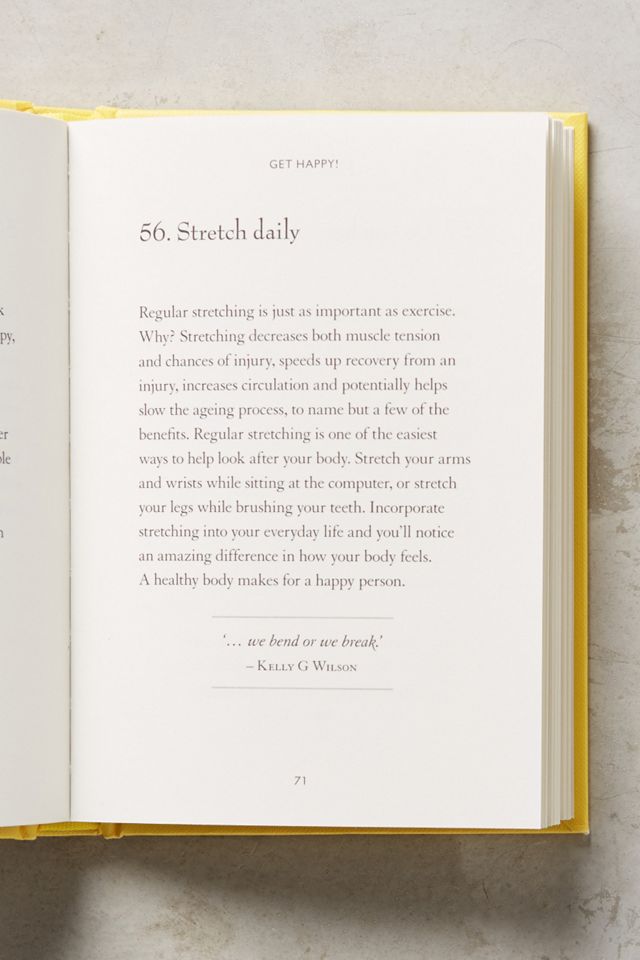 GET HAPPY!
56. Stretch daily
Regular stretching is just as important as exercise.
Why? Stretching decreases both muscle tension
and chances of injury, speeds up recovery from an
injury, increases circulation and potentially helps
slow the ageing process, to name but a few of the
benefits. Regular stretching is one of the easiest
ways to help look after your body. Stretch your arms
and wrists while sitting at the computer, or stretch
your legs while brushing your teeth. Incorporate
stretching into your everyday life and you’ll notice
an amazing difference in how your body feels.
A healthy body makes for a happy person.
‘… we bend or we break.’
– Kelly G Wilson
71